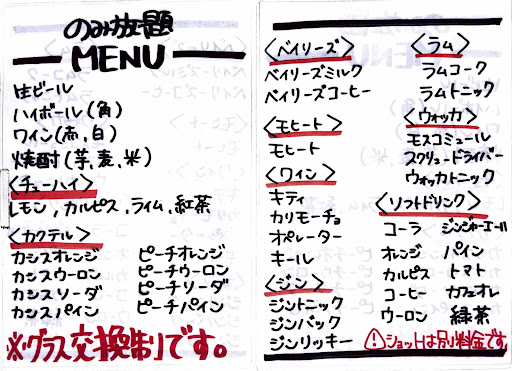 のみ放題
MENU
生ビール
ハイボール(角)
ワイン(赤,白)
焼酎(芋,麦,米)
〈チューハイ〉
レモン,カルピス,ライム,紅茶
〈カクテル〉
カシスオレンジ
カシスウーロン
カシスソーダ
カシスパイン
ピーチオレンジ
ピーチウーロン
ピーチソーダ
ピーチパイン
※グラス交換制です。
〈ベイリーズ〉
ベイリーズミルク
ベイリーズコーヒー
〈モヒート〉
モヒート
〈ワイン〉
キティ
カリモーチョ
オペレーター
キール
〈ジン〉
ジントニック
ジンバック
ジンリッキー
〈ラム〉
ラムコーク
ラムトニック
〈ウォッカ〉
モスコミュール
スクリュードライバー
ウォッカトニック
〈ソフトドリンク〉
コーラ ジンジャーエール
オレンジ パイン
カルピス トマト
コーヒー カフェオレ
ウーロン 緑茶
ショットは別料金です